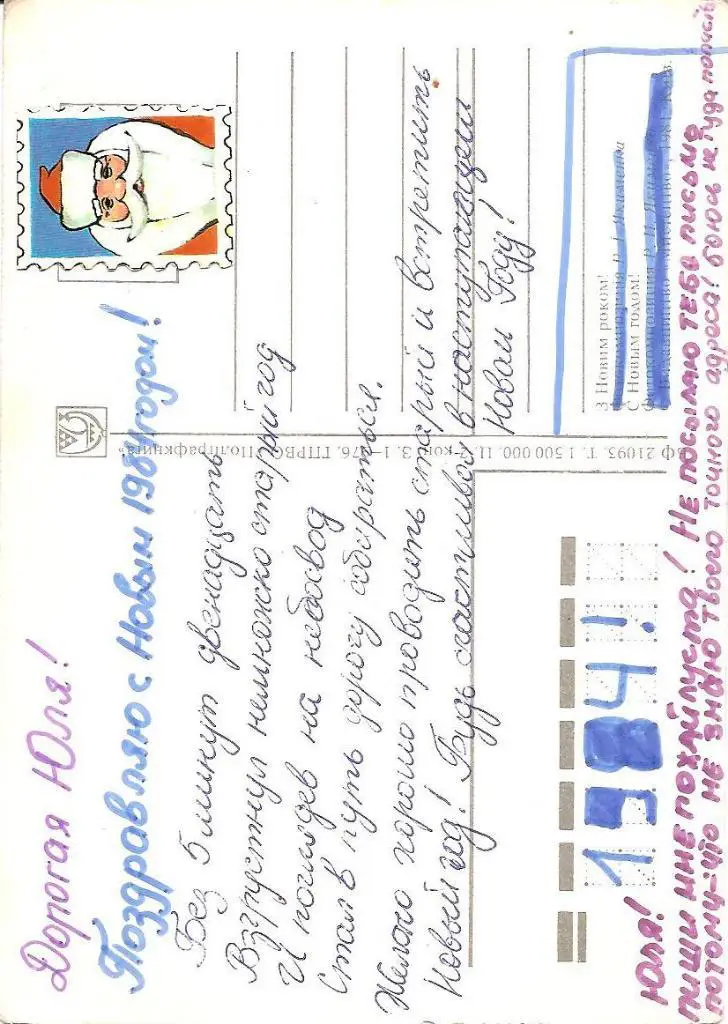 Дорогая Юля!
Поздравляю с Новым 1984 годом!
Без 5 минут двенадцать
Взгрустнул немножко старый год
И поглядев на небосвод
Стал в путь дорогу собираться.
Желаю хорошо проводить старый и встретить
Новый год! Будь счастливой в наступающем
Новом Году!
БФ 21095. Т. 1 500 000. коп. З. 1— 176. ГПРВО «Полиграфкнига»
З Новим роком!
С Новым годом!
1984!
Юля!
Пиши мне пожайлуста! Не посылаю тебе письмо
потому-что не знаю твоего точного адреса! боюсь не туда попасть